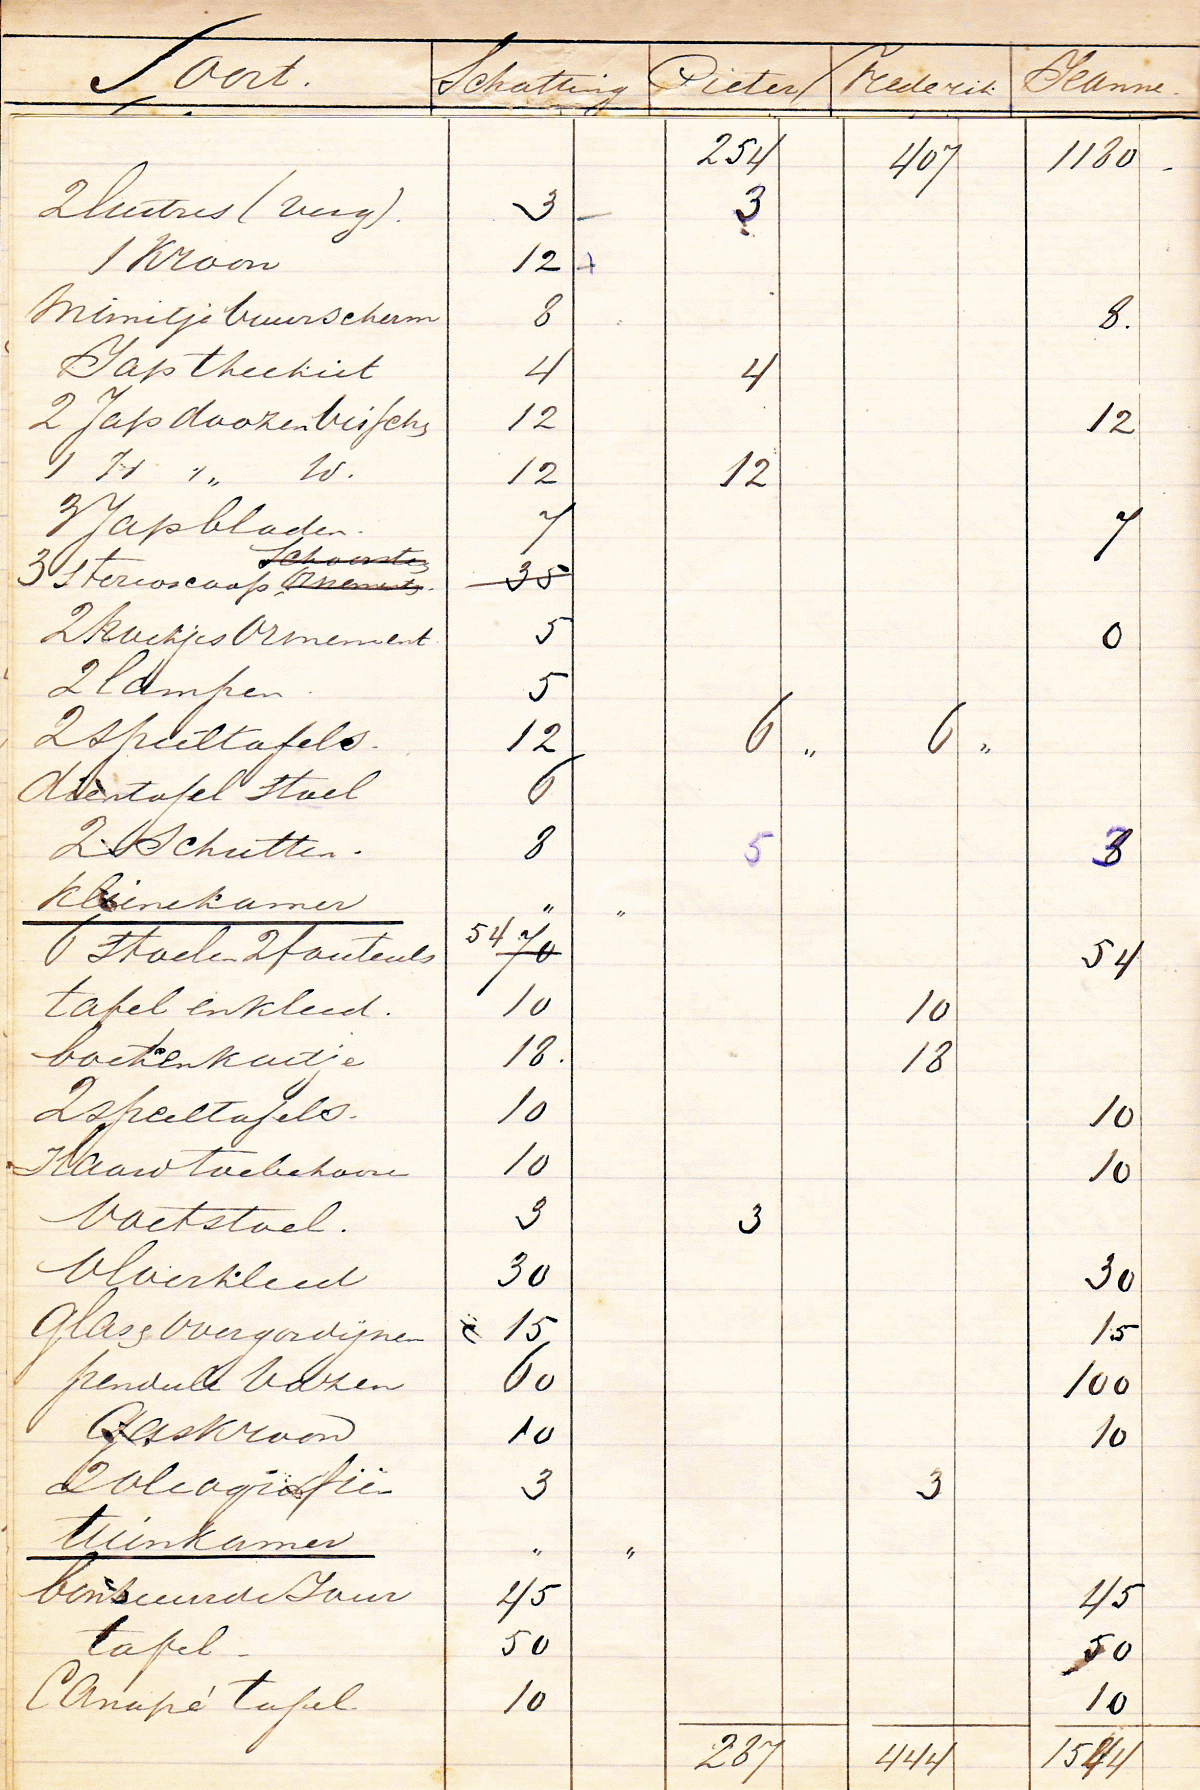 Soort. Schatting Pieter Frederik Jeanne.
254 407 1180 -
2 lustres (verg). 3 - 3
1 Kroon 12
vuurscherm 8 8.
Jap theekist 4 4
2 Jap doozen 12 12
1 " W. 12 12
3 Jap bladen. 7 7
Schoorste
3 Stereoscoop 35
2 hoekjes Ornement 5 0
2 lampen 5
2 speeltafels. 12 6 " 6 "
dientafel stoel 6
2 Schutten. 8 5 8
kleinekamer " "
6 Stoelen 2 fauteuls 54 70 54
tafel en kleed. 10 10
boekenkastje 18. 18
2 speeltafels. 10 10
Haard toebehoore 10 10
Voetstoel. 3 3
Vloerkleed 30 30
Glas & overgordijnen 15 15
pendule Vazen 60 100
Gaskroon 10 10
2 oleografiën 3 3
tuinkamer " "
45 45
tafel - 50 50
Canapé tafel 10 10
287 444 1544